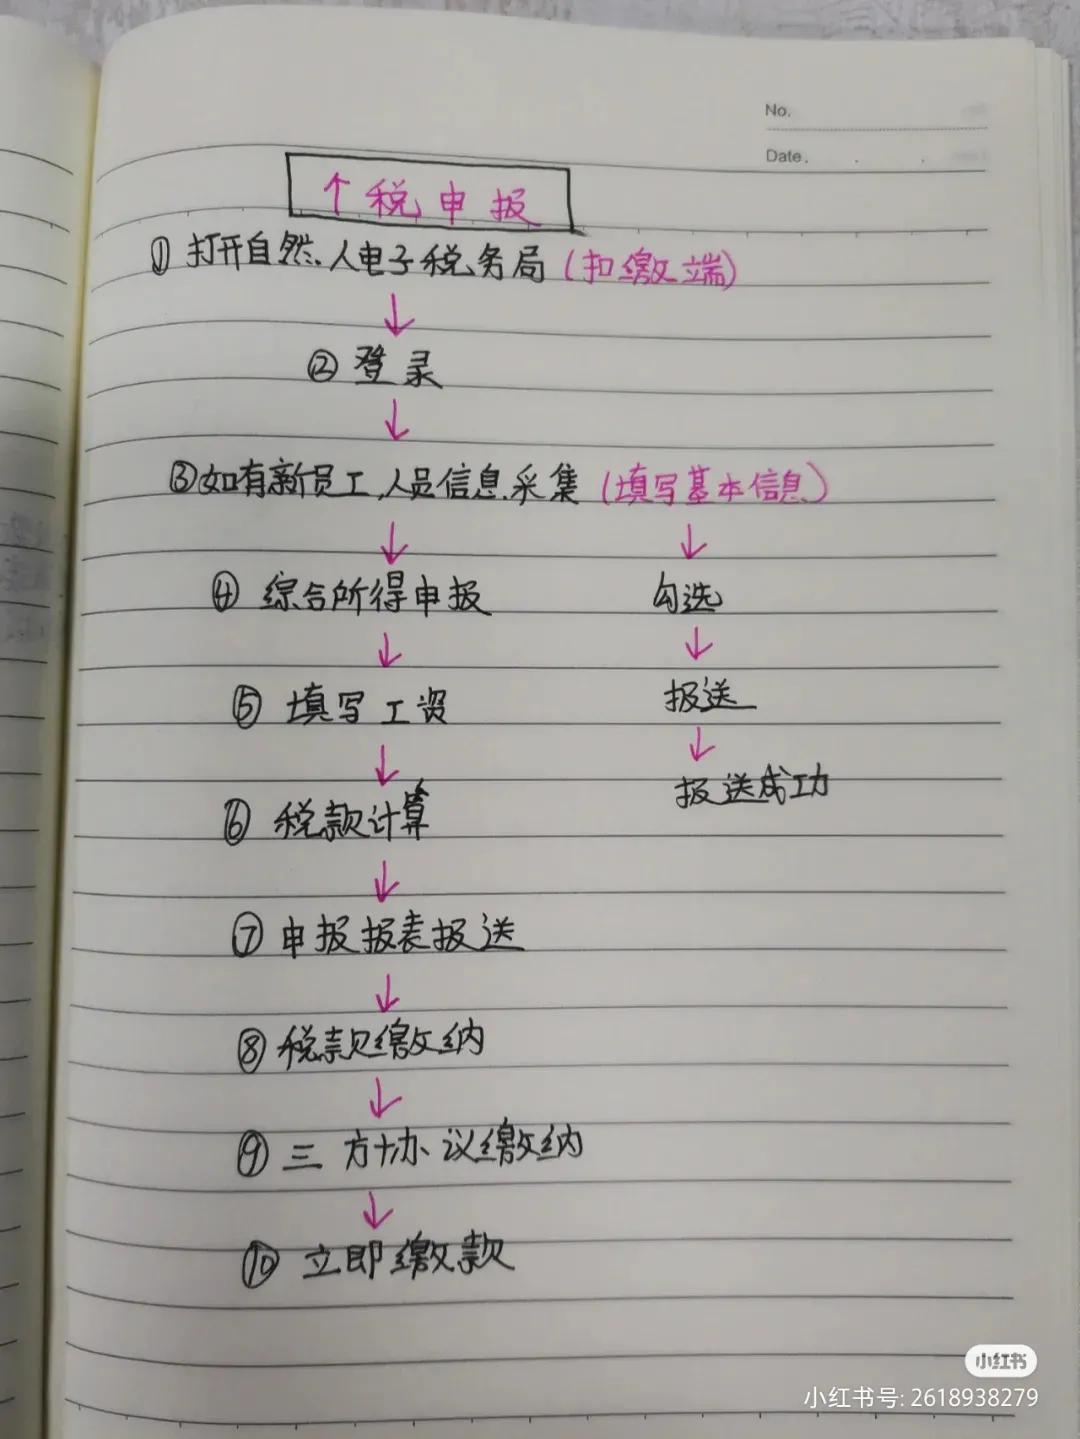 No.
Date.
个税申报
①打开自然人电子税务局(扣缴端)
↓
②登录
↓
③如有新员工,人员信息采集(填写基本信息)
↓ ↓
④综合所得申报 勾选
↓ ↓
⑤填写工资 报送
↓ ↓
⑥税款计算 报送成功
↓
⑦申报报表报送
↓
⑧税款缴纳
↓
⑨三方协议缴纳
↓
⑩立即缴款
小红书
小红书号: 2618938279